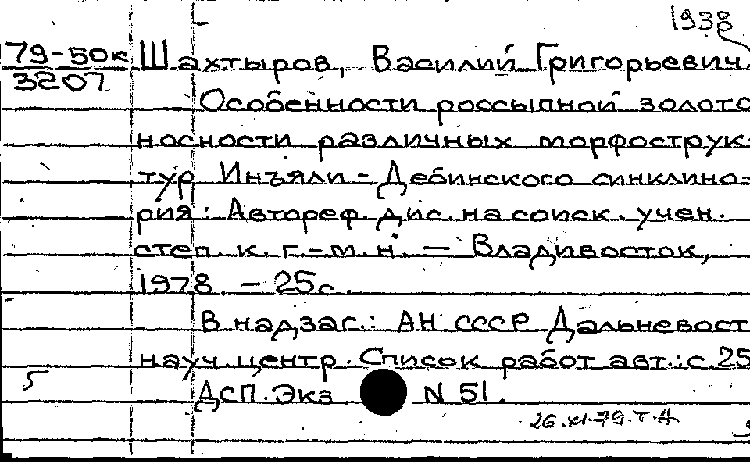 1938
79-50к Шахтыров, Василий Григорьевич
3207
Особенности россыпной золото
носности различных морфострук-
тур Иньяли-Дебинского синклино-
рия: Автореф. дис. на соиск. учен.
степ. к. г.-м. н. — Владивосток,
1978. - 25с.
В надзаг.: АН СССР Дальневост
науч. центр. Список работ авт.: с. 25
5 ДСП. Экз N 51.
26.XI.79.Т.А